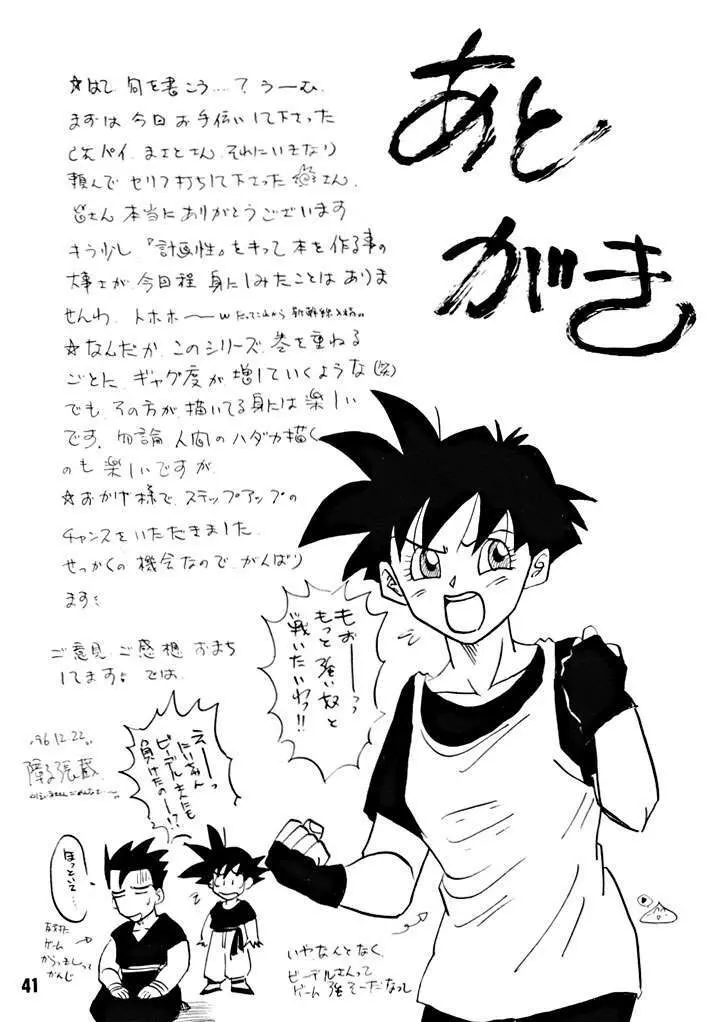 あと
がき
☆はて、何を書こう……？うーむ。
まずは今回お手伝いして下さった
パイ、まさとさん、それにいきなり
頼んでセリフ打ちして下さった さん、
皆さん本当にありがとうございます
もう少し『計画性』をもって本を作る事の
大事さが、今回程身にしみたことはありま
せんわ、トホホ〜〜
☆なんだか、このシリーズ、巻を重ねる
ごとに、ギャグ度が増していくような(笑)
でも、その方が、描いてる身には楽しい
です。勿論人間のハダカ描く
のも楽しいですが。
☆おかげ様で、ステップアップの
チャンスをいただきました。
せっかくの機会なので、がんばり
ます
ご意見、ご感想おまち
してます。では。
'96.12.22.
障子張蔵
もおーーっっ
もっと強い奴と
戦いたいわっ!!
えーーっ
にいちゃん
ビーデルさんにも
負けたのー!?
ほっといて…
ゲーム
かんじ
いやなんとなく、
ビーデルさんって
ゲーム強そーだなって
41